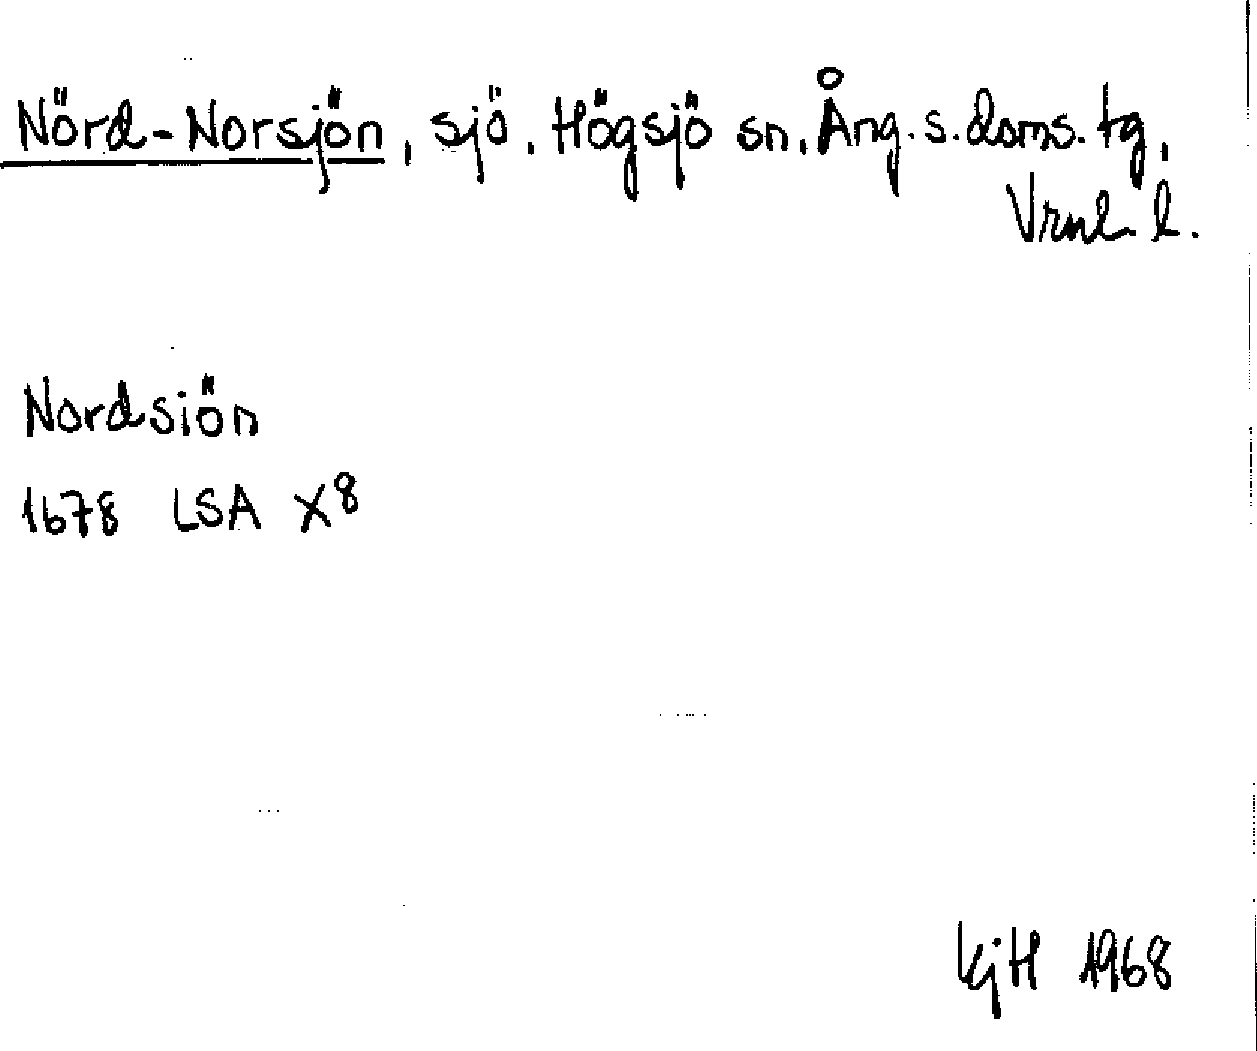 Nörd-Norsjön, sjö, Högsjö sn, Ång. s. doms. tg,
Vrnl. l.
Nordsiön
1678 LSA X8
KjH 1968